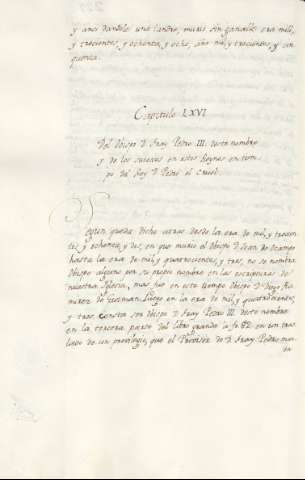 y anos dandole una landre, murio sin ganarle era mil,
y trecientos, y ochenta, y ocho, año mil y trecientos, y cin
quenta.
Capitulo LXVI
Del obispo D. fray Pedro III. deste nombre
y de los sucesos en estos Reynos en tiem
po del Rey D. Pedro el Cruel.
Segun queda dicho atras desde la era de mil, y trecien
tos, y ochenta, y dos, en que murio el obispo D. Juan de ocampo
hasta la era de mil, y quatrocientos, y tres, no se nombra
obispo alguno por su propio nombre en las escripturas de
nuestra Iglesia, mas huo en este tiempo obispo D. Diego Ra
mirez de Guzman. Luego en la era de mil, y quatrocientos,
y tres consta ser obispo D. fray Pedro III deste nombre
en la tercera parte del libro grande a fo. 82. en un tras
lado de un privilegio, que el Provisor de D. fray Pedro man
da